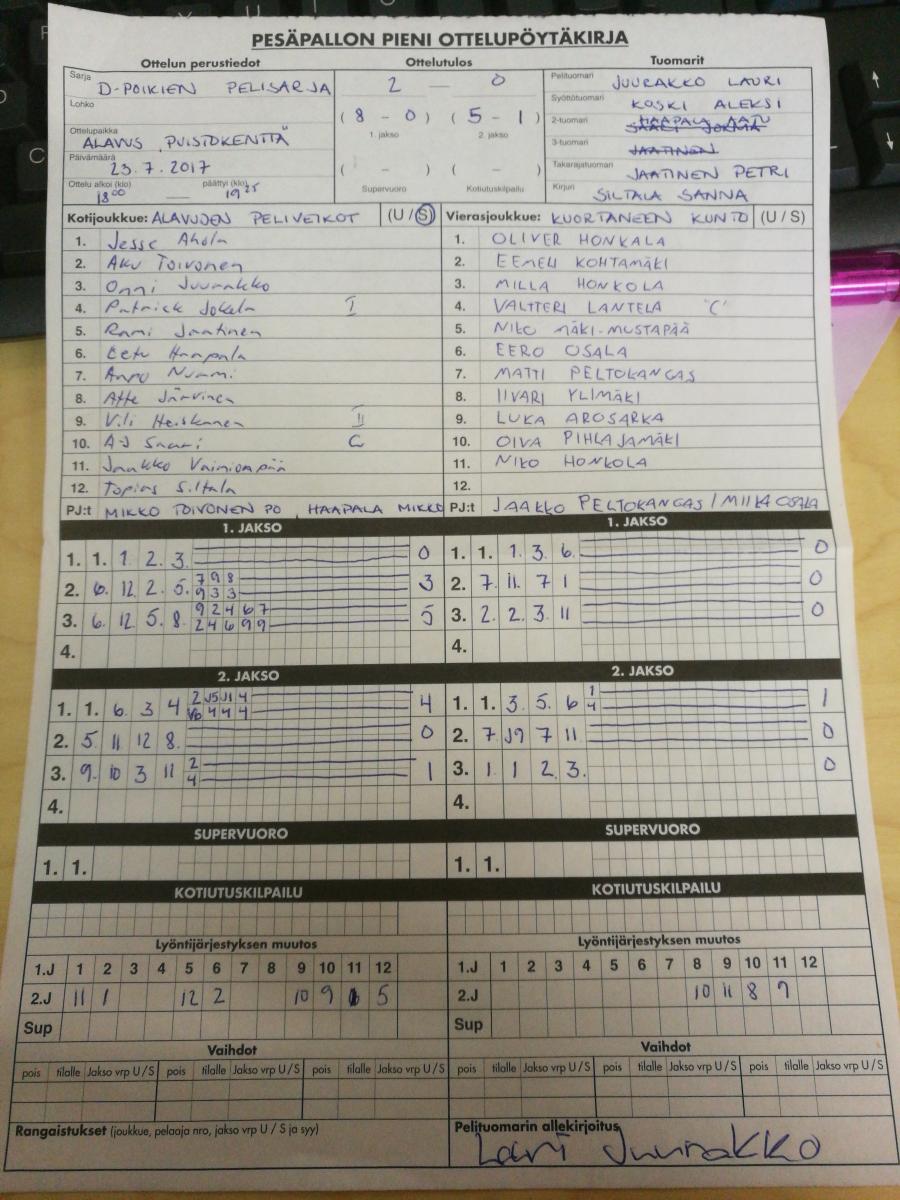 PESÄPALLON PIENI OTTELUPÖYTÄKIRJA
Ottelun perustiedot
Ottelutulos
Tuomarit
Sarja D-POIKIEN PELISARJA
Lohko
Ottelupaikka ALAVUS, PUISTOKENTTÄ
Päivämäärä 23.7.2017
Ottelu alkoi (klo) päättyi (klo)
18 00 — 19 25
2 — 0
( 8 - 0 ) ( 5 - 1 )
1. jakso 2. jakso
( - ) ( - )
Supervuoro Kotiutuskilpailu
Pelituomari JUURAKKO LAURI
Syöttötuomari KOSKI ALEKSI
2-tuomari HAAPALA AATU
3-tuomari JAATINEN
Takarajatuomari JAATINEN PETRI
Kirjuri SILTALA SANNA
Kotijoukkue: ALAVUDEN PELIVEIKOT (U / S)
1. Jesse Ahola
2. Aku Toivonen
3. Onni Juurakko
4. Patrick Jokela I
5. Rami Jaatinen
6. Eetu Haapala
7. Anpu Nurmi
8. Atte Järvinen
9. Vili Heiskanen II
10. AJ Saari C
11. Jaakko Vainionpää
12. Topias Siltala
PJ:t MIKKO TOIVONEN PO, HAAPALA MIKKO
Vierasjoukkue: KUORTANEEN KUNTO (U / S)
1. OLIVER HONKALA
2. EEMELI KOHTAMÄKI
3. MILLA HONKOLA
4. VALTTERI LANTELA "C"
5. NIKO MÄKI-MUSTAPÄÄ
6. EERO OSALA
7. MATTI PELTOKANGAS
8. IIVARI YLIMÄKI
9. LUKA AROSARKA
10. OIVA PIHLAJAMÄKI
11. NIKO HONKOLA
12.
PJ:t JAAKKO PELTOKANGAS / MIIKA OSALA
1. JAKSO
1. 1. 1. 2. 3. 0
2. 6. 12. 2. 5. 7 9 8 3
9 3 3
3. 6. 12. 5. 8. 9 2 4 6 7 5
2 4 6 9 9
4.
1. JAKSO
1. 1. 1. 3. 6. 0
2. 7. 11. 7 1 0
3. 2. 2. 3. 11 0
4.
2. JAKSO
1. 1. 6. 3 4 2 J5 J1 4 4
V6 4 4 4
2. 5. 11 12 8. 0
3. 9. 10 3 11 2 1
4
4.
2. JAKSO
1. 1. 3. 5. 6 1 1
4
2. 7 J9 7 11. 0
3. 1 1 2 3. 0
4.
SUPERVUORO
1. 1.
SUPERVUORO
1. 1.
KOTIUTUSKILPAILU
KOTIUTUSKILPAILU
Lyöntijärjestyksen muutos
1.J 1 2 3 4 5 6 7 8 9 10 11 12
2.J 11 1 12 2 10 9 5
Sup
Lyöntijärjestyksen muutos
1.J 1 2 3 4 5 6 7 8 9 10 11 12
2.J 10 11 8 9
Sup
Vaihdot
pois tilalle Jakso vrp U / S pois tilalle Jakso vrp U / S pois tilalle Jakso vrp U / S
Vaihdot
pois tilalle Jakso vrp U / S pois tilalle Jakso vrp U / S pois tilalle Jakso vrp U / S
Rangaistukset (joukkue, pelaaja nro, jakso vrp U / S ja syy)
Pelituomarin allekirjoitus
Lauri Juurakko